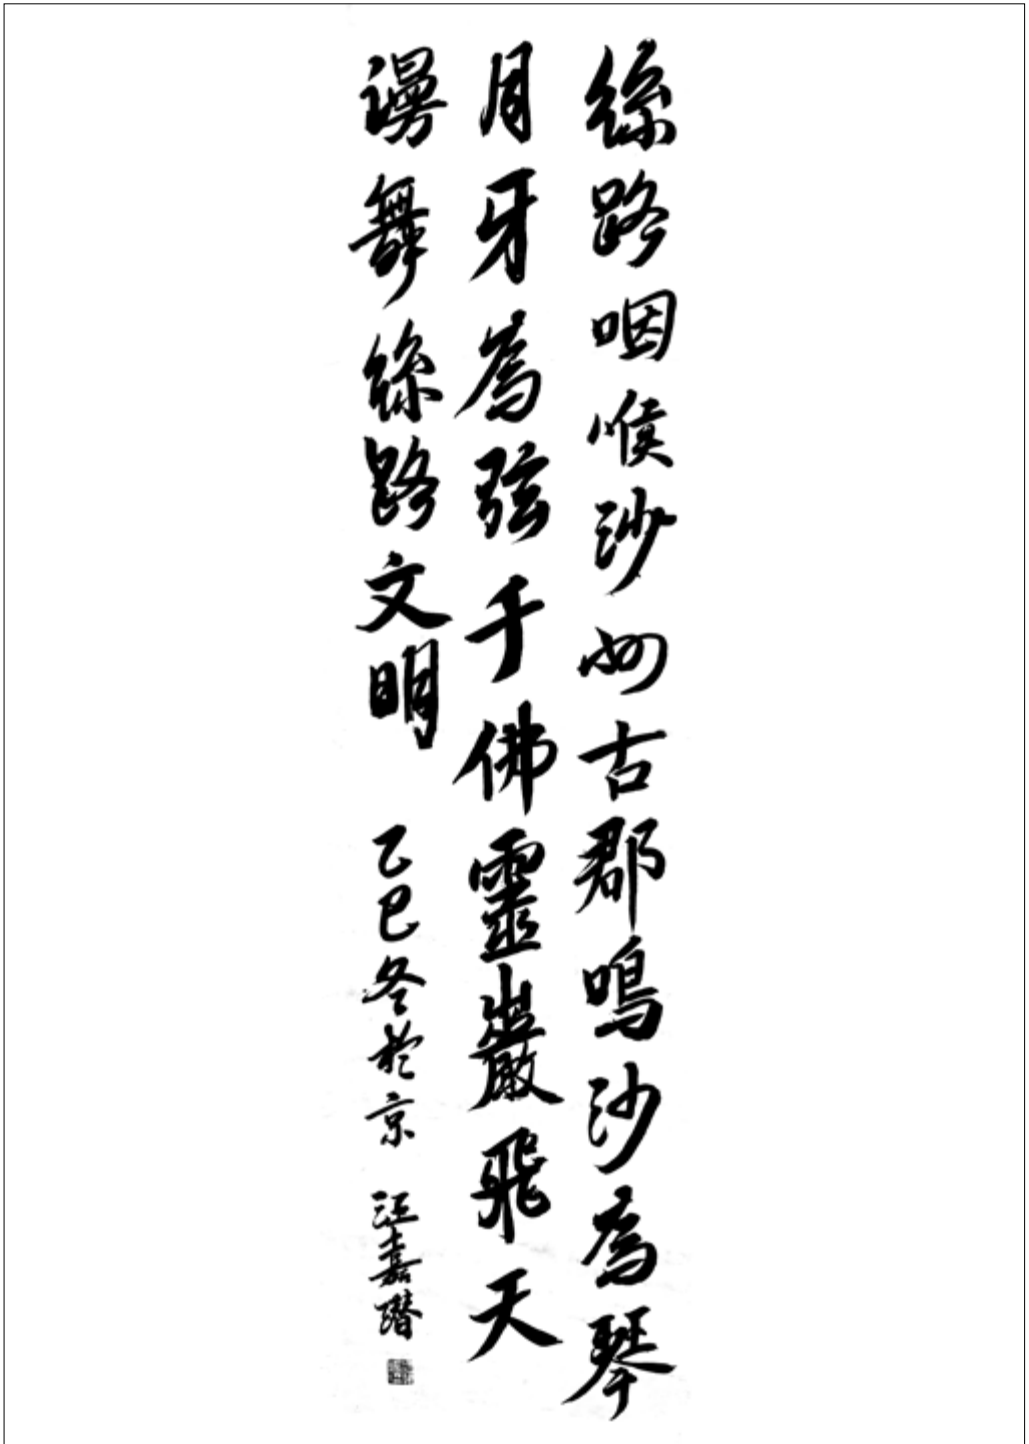 絲路咽喉沙州古郡鳴沙為琴
月牙為弦千佛靈巖飛天
謾舞絲路文明
乙巳冬於京 汪嘉